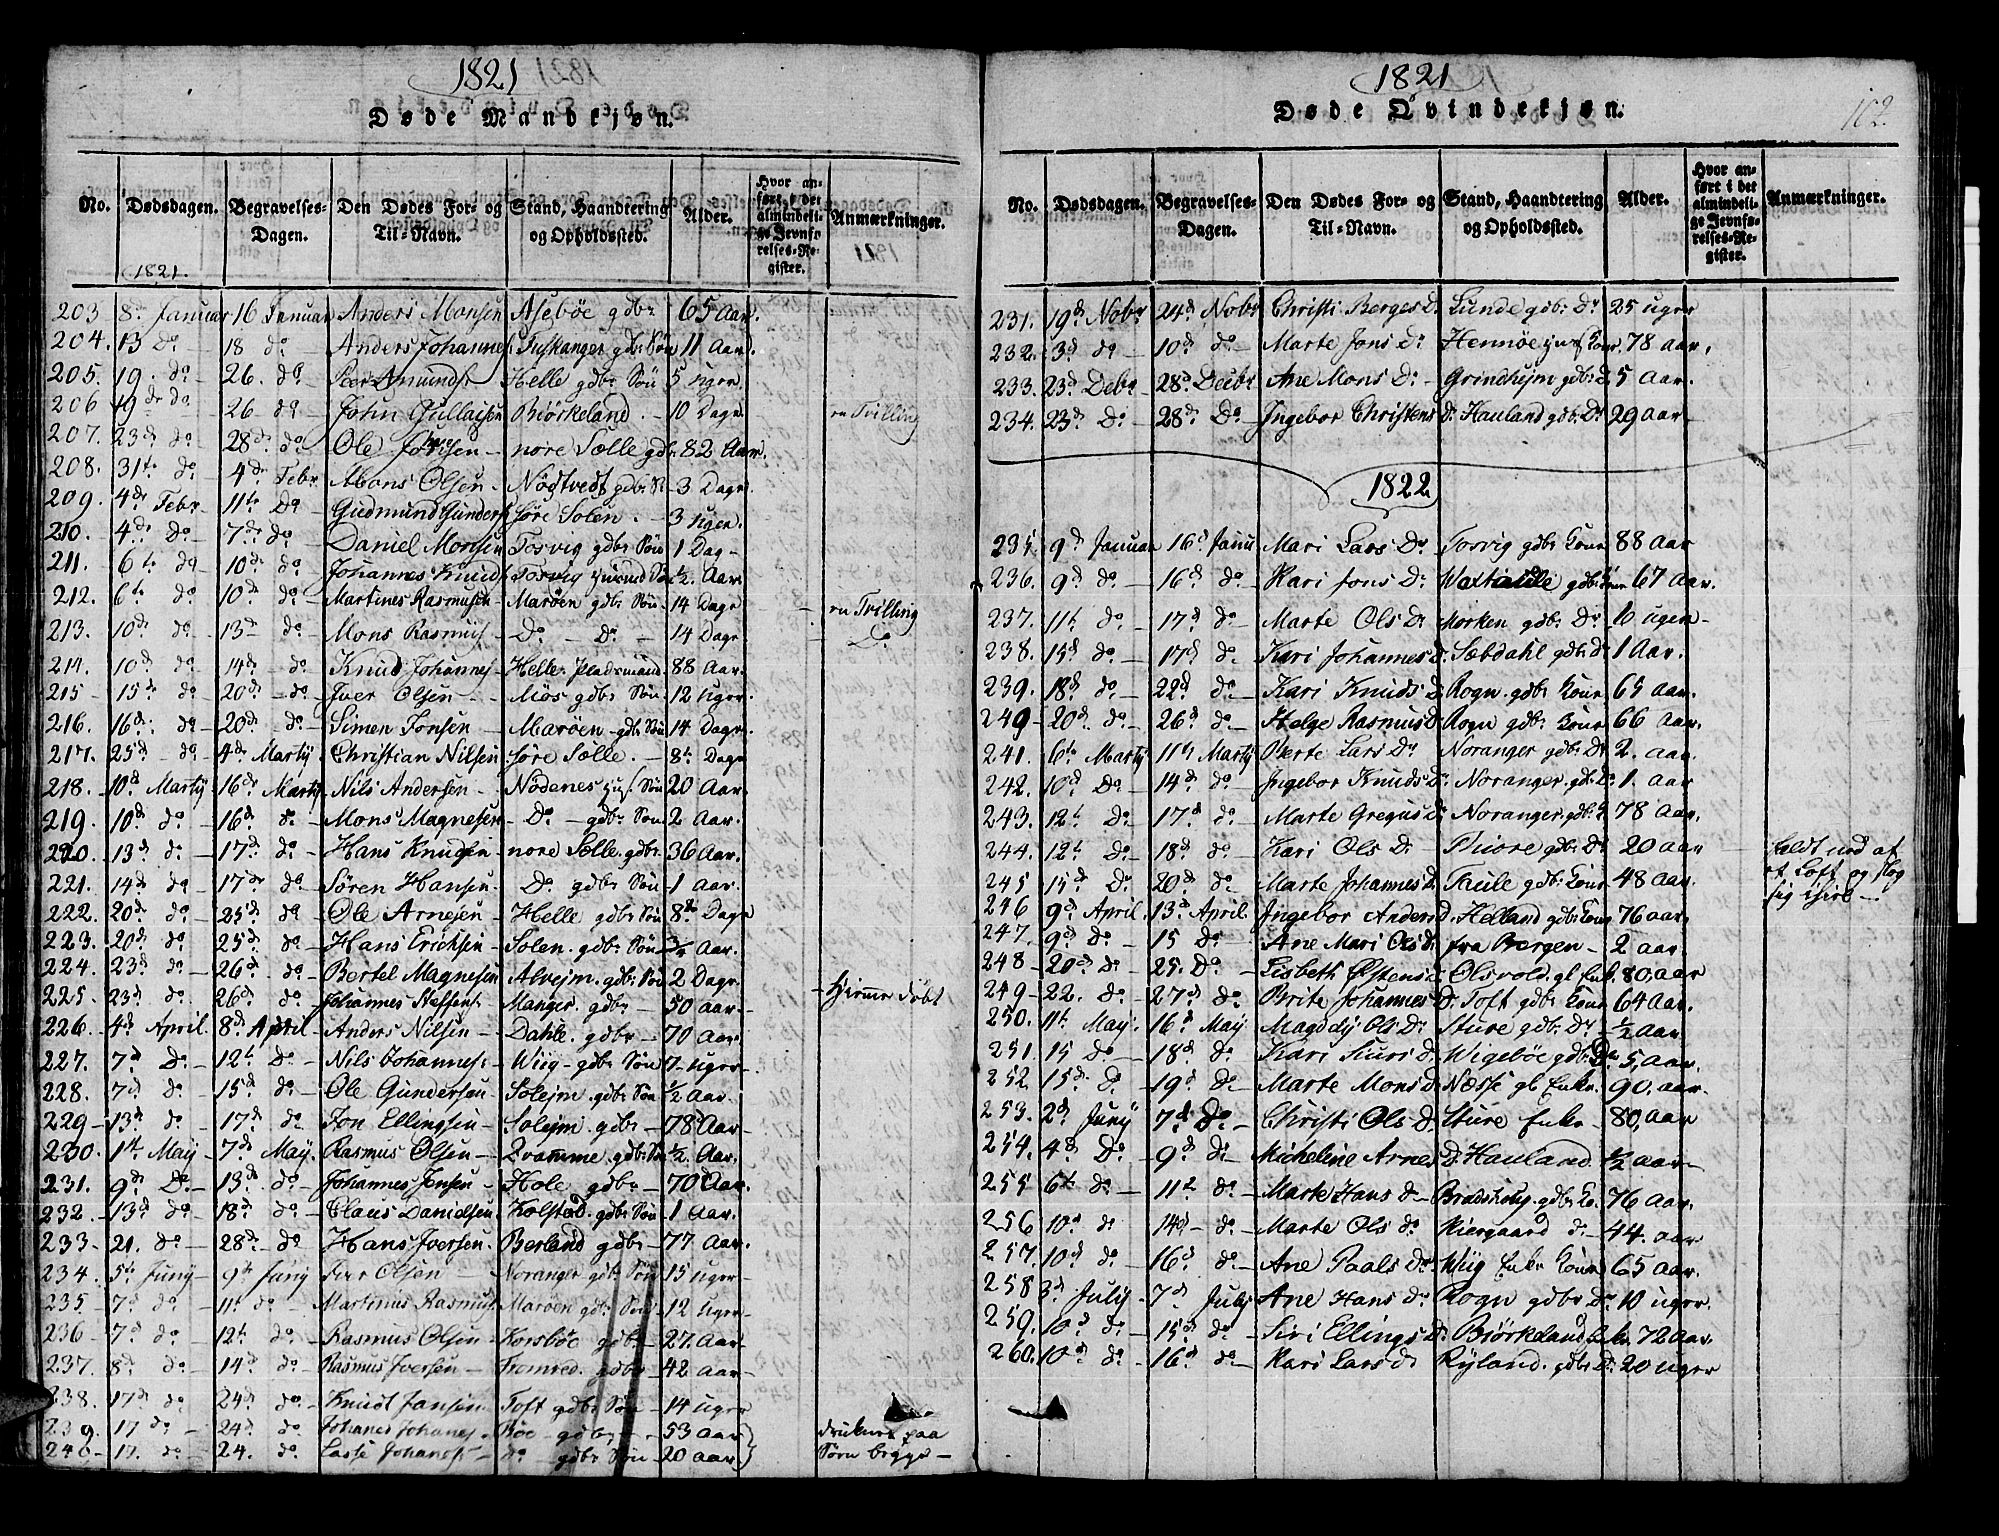 1821
Døde Mandkjøn.
No. Dødsdagen. Begravelses-Dagen. Den Dødes For- og Til-Navn. Stand, Haandtering og Opholdssted. Alder. Hvor anført i det almindelige Jevnførelses-Register. Anmærkninger.
1821.
203 8d Januar 16 Januar Anders Monsen Aseböe gdbr 65 Aar.
204. 13 Do 18 do Anders Johannes Tuskanger gdbr Sön 11 Aar.
205. 19. do 26. do Peer Amunds Helle gdbr Sön 5 uger.
206 19 do 26 do John Gullacsen Biörkeland. 10 Dage en Tvilling
207. 23d do 28d do Ole Jonsen nore Sælle gdbr 82 Aar.
208. 31te do 4de Febr Mons Olsen Nödtvedt gdbr S 3 Dage
209. 4de Febr 11te Do Gudmund Gunders Söre Solen. 3 ugen.
210. 4de Do 7de do Daniel Monsen Tosvig gdbr Sön 1 Dag
211. 6te do 10de do Johannes Knuds Tosvig huusmd Sön ½ Aar
212. 6te do 10de do Martines Rasmusen Maröen gdbr Sön 14 Dage en Tvilling
213. 10de do 13 do Mons Rasmus Do Do 14 Dage Do
214. 10de do 14de do Knud Johannes Helle Pladsmand 88 Aar.
215 15de do 20de do Iver Olsen Mos gdbr Sön 12 uger
216. 16de do 20de do Simen Jonsen Maröen gdbr Sön 14 Dage
217. 25d do 4de Martij Christian Nilsen Söre Sælle. 8te Dage
218. 10d Martij 16de Martij Nils Andersen Nödenes huus Sön 20 Aar.
219. 10d do 16de do Mons Magnesen Do gdbr Sön 2 Aar.
220. 13d do 17de do Hans Knudsen nore Sælle. gdbr 36 Aar.
221. 14d do 17de do Sören Hansen Do gdbr Sön 1 Aar.
222. 20d do 25d do Ole Arnesen Helle gdbr Sön 8te Dage
223. 20d do 25d do Hans Erichsen Solen. gdbr Sön ¾ Aar.
224. 23d do 26d do Bertel Magnesen Alvejm. gdbr Sön 2 Dage hjemme Döbt
225. 23d do 26d do Johannes Steffens Manger. gdbr 50 Aar.
226. 4d April. 8d April Anders Nilsen Dahle. gdbr 70 Aar.
227. 7d Do 12te Do Nils Johannes Wiig gdbr Sön 7 uger
228. 7d do 15d do Ole Gundersen Solejm gdbr Sön ½ Aar.
229 13d do 17d do Jon Ellingsen Solejm gdbr 78 Aar
230. 1te May 7de May. Rasmus Olsen Qvamme gdbr Sön ½ Aar.
231. 9de Do 13d do Johannes Jensen Hole gdbr 70 Aar.
232. 13d do 18d do Claus Danielsen Kolstad gdbr Sön 1 Aar.
233 21. do 28de do Hans Iversen Berland gdbr 77 Aar.
234. 5te Junij 9te Junij Iver Olsen Noranger gdbr Sön 15 uger
235 7d do 11te do Martinus Rasmus Maröen gdbr Sön 12 uger
236 7d do 12te do Rasmus Olsen Korsböe gdbr 27. Aar
237. 8d do 14d do Rasmus Iversen Fromred gdbr 42 Aar
238. 17d do 24d do Knudt Jansen Toft gdbr Sön 14 uger
239. 17 do 24d do Johanes Johanes Böe gdbr 53 Aar
240 17. do 24. do Lasse Johanes do gdbr Sön 20 Aar druknede paa Sörn brygge
1821
Døde Qvindekjøn.
102.
No. Dødsdagen. Begravelses-Dagen. Den Dødes For- og Til-Navn. Stand, Haandtering og Opholdssted. Alder. Hvor anført i det almindelige Jevnførelses-Register. Anmærkninger.
231. 19d Nobr 24d Nobr Christi Berges D. Lunde gdbr Dr 25 uger
232. 3d do 10d do Marte Jons D. Hennöe huus Kone. 78 aar.
233. 23d Debr 28d Debr Ane Mons D. Grindhejm gdbr D. 5 Aar.
234. 23d Do 28d Do Ingebor Christens D. Hauland gdbr Dr 29 aar
1822
235. 9d Januar 16d Janu Mari Lars Dr Tosvig gdbr Kone 88 aar
236. 9d do 16d do Kari Jons D. gdbr Kone 67 Aar.
237. 11te do 17d do Marte Ols D. Morken gdbr Dr 10 ugen
238. 15d do 17d do Kari Johannes d. Sæbdahl gdbr Dr 1 Aar.
239. 18d do 22d do Kari Knuds d. Rogn. gdbr Kone 65 Aar.
249 20d do 26d do Helge Rasmus d. Rogn gdbr Kone 66 Aar.
241. 6te Martij 11te Martij Berte Lars Dr Noranger gdbr Dr 2. aar
242. 10d Do 14d do Ingebor Knuds Dr Noranger. gdbr D. 1. aar
243. 12te Do 17d do Marte Gregus D. Noranger. gdbr K 78 Aar.
244. 12te Do 18d do Kari Ols D. Thore gdbr Dr 20 aar faldt ned af et Loft og slog sig ihiel
245 15d Do 20d do Marte Johannes D. Taule gdbr Kone 48 Aar.
246 9d April 13d April. Ingebor Anders d. Helland gdbr Kone 76 aar.
247. 9d Do 15 Do Ane Mari Ols D. fra Bergen 2 aar
248 20d Do 25. Do Lisbeth Östens d. Olsvold. gl Enk. 80. aar
249 22. Do 27d do Brite Johannes D. Toft gdbr Kone 64 Aar.
250. 11te May 16d May Magdelj Ols D. Sture gdbr Dr ½ aar
251. 15 Do 18d do Kari Siurs D. Wigeböe gdbr Dr 5 aar.
252 15d D. 19d do Marte Mons D. Næsse gl Enke 90. aar
253. 2d Junij 7d Do Christi Ols D. Sture Enke 80. aar
254. 4d Do 9d Do Micheline Arnes D. Hauland. ½ aar
255 6te do 11te do Marte Hans D. gdbr Ko. 76 aar
256 10d do 14d do Marte Ols D. Kiergaard do 44. aar
257. 10d do 16d do Ane Paals D. Wiig Enke Kone 65 aar.
258 3d July 7d July Ane Hans D. Rogn gdbr D. 10 uger.
259. 10d do 15d do Siri Ellings D. Biörkeland 72 aar.
260. 10d do 16d do Kari Lars d. Ryland. gdbr D. 20 uger